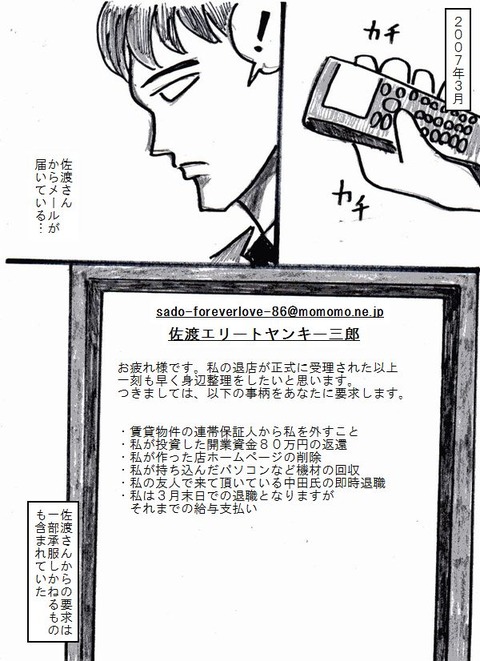 ２００７年３月
カチ
カチ
！
佐渡さん
からメールが
届いている…
sado-foreverlove-86@momomo.ne.jp
佐渡エリートヤンキー三郎
お疲れ様です。私の退店が正式に受理された以上
一刻も早く身辺整理をしたいと思います。
つきましては、以下の事柄をあなたに要求します。
・賃貸物件の連帯保証人から私を外すこと
・私が投資した開業資金８０万円の返還
・私が作った店ホームページの削除
・私が持ち込んだパソコンなど機材の回収
・私の友人で来て頂いている中田氏の即時退職
・私は３月末日での退職となりますが
それまでの給与支払い
佐渡さんからの要求は
一部承服しかねるもの
も含まれていた